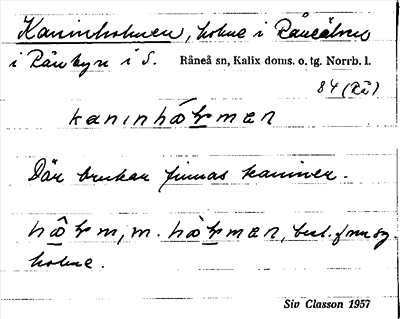 Kaninholmen, holme i Råneälven
i Rånbyn i S. Råneå sn, Kalix doms. o. tg. Norrb. l.
84 (Rå)
kaninhɷ́ɽmən
Där brukar finnas kaniner.
hɷ̂ɽm, m. hɷ̀ɽmən, best. f. nu sg.
holme.
Siv Classon 1957